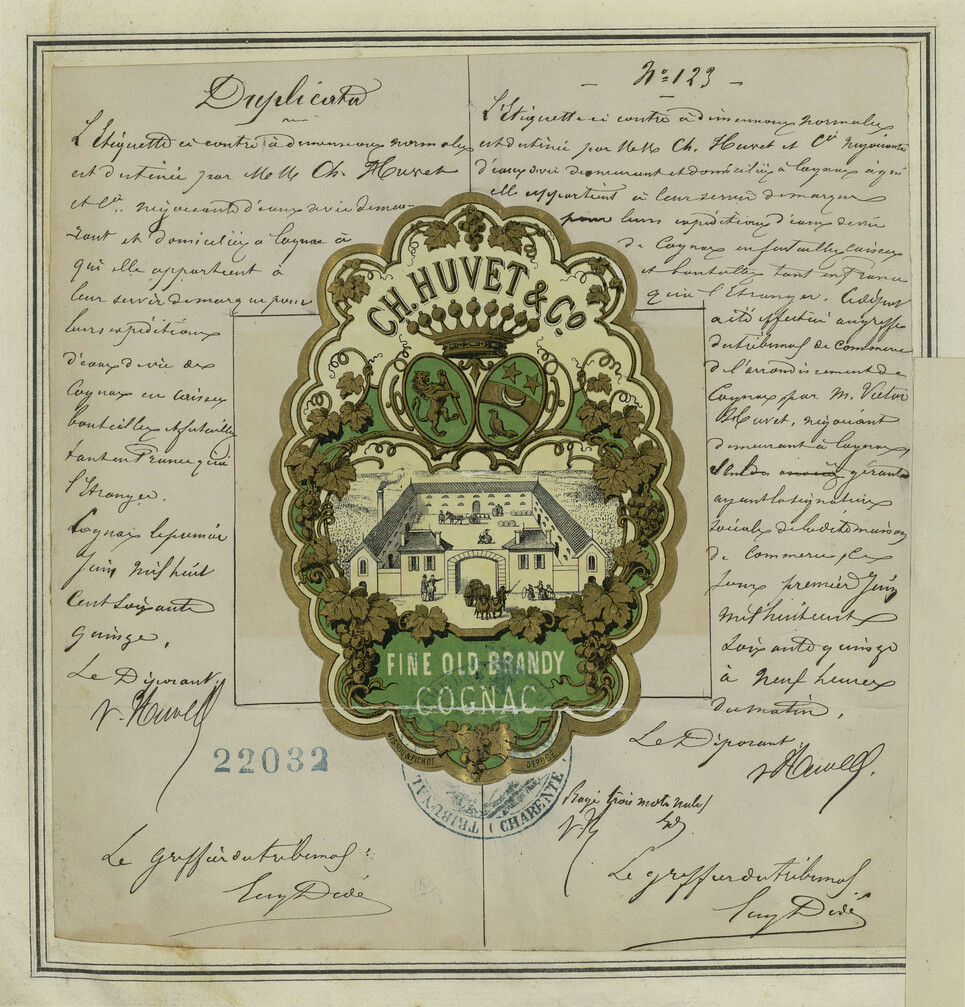 Duplicata
L'Etiquette ci contre à dimensions normales
est destinée par MM. Ch. Huvet
et Cie. négociants d'eaux de vie demeu-
rant et domiciliés à Cognac à
qui elle appartient à
leur servir de marque pour
leurs expéditions
d'eaux de vie de
Cognac en caisses
bouteilles et futailles
tant en France qu'à
l'Etranger.
Cognac le premier
Juin mil huit
cent soixante
quinze.
Le Déposant:
V. Huvet
22032
Le greffier du tribunal:
Guy Dédé
N° 123
L'Etiquette ci contre à dimensions normales
est destinée par MM. Ch. Huvet et Cie Négociants
d'eaux de vie demeurant et domiciliés à Cognac à qui
elle appartient à leur servir de marque
pour leurs expéditions d'eaux de vie
de Cognac en futailles caisses
et bouteilles tant en France
qu'à l'Etranger. Ce dépôt
a été effectué au greffe
du tribunal de commerce
de l'arrondissement de
Cognac par M. Victor
Huvet, négociant
demeurant à Cognac
gérants
ayant la signature
sociale de ladite maison
de commerce, ce
jour premier Juin
mil huit cent
soixante quinze
à neuf heures
du matin.
Le Déposant:
V. Huvet.
Rayé trois mots nuls
Le greffier du tribunal
Guy Dédé
CH. HUVET & Co
FINE OLD BRANDY
COGNAC
DÉPOSÉ
TRIBUNAL
CHARENTE